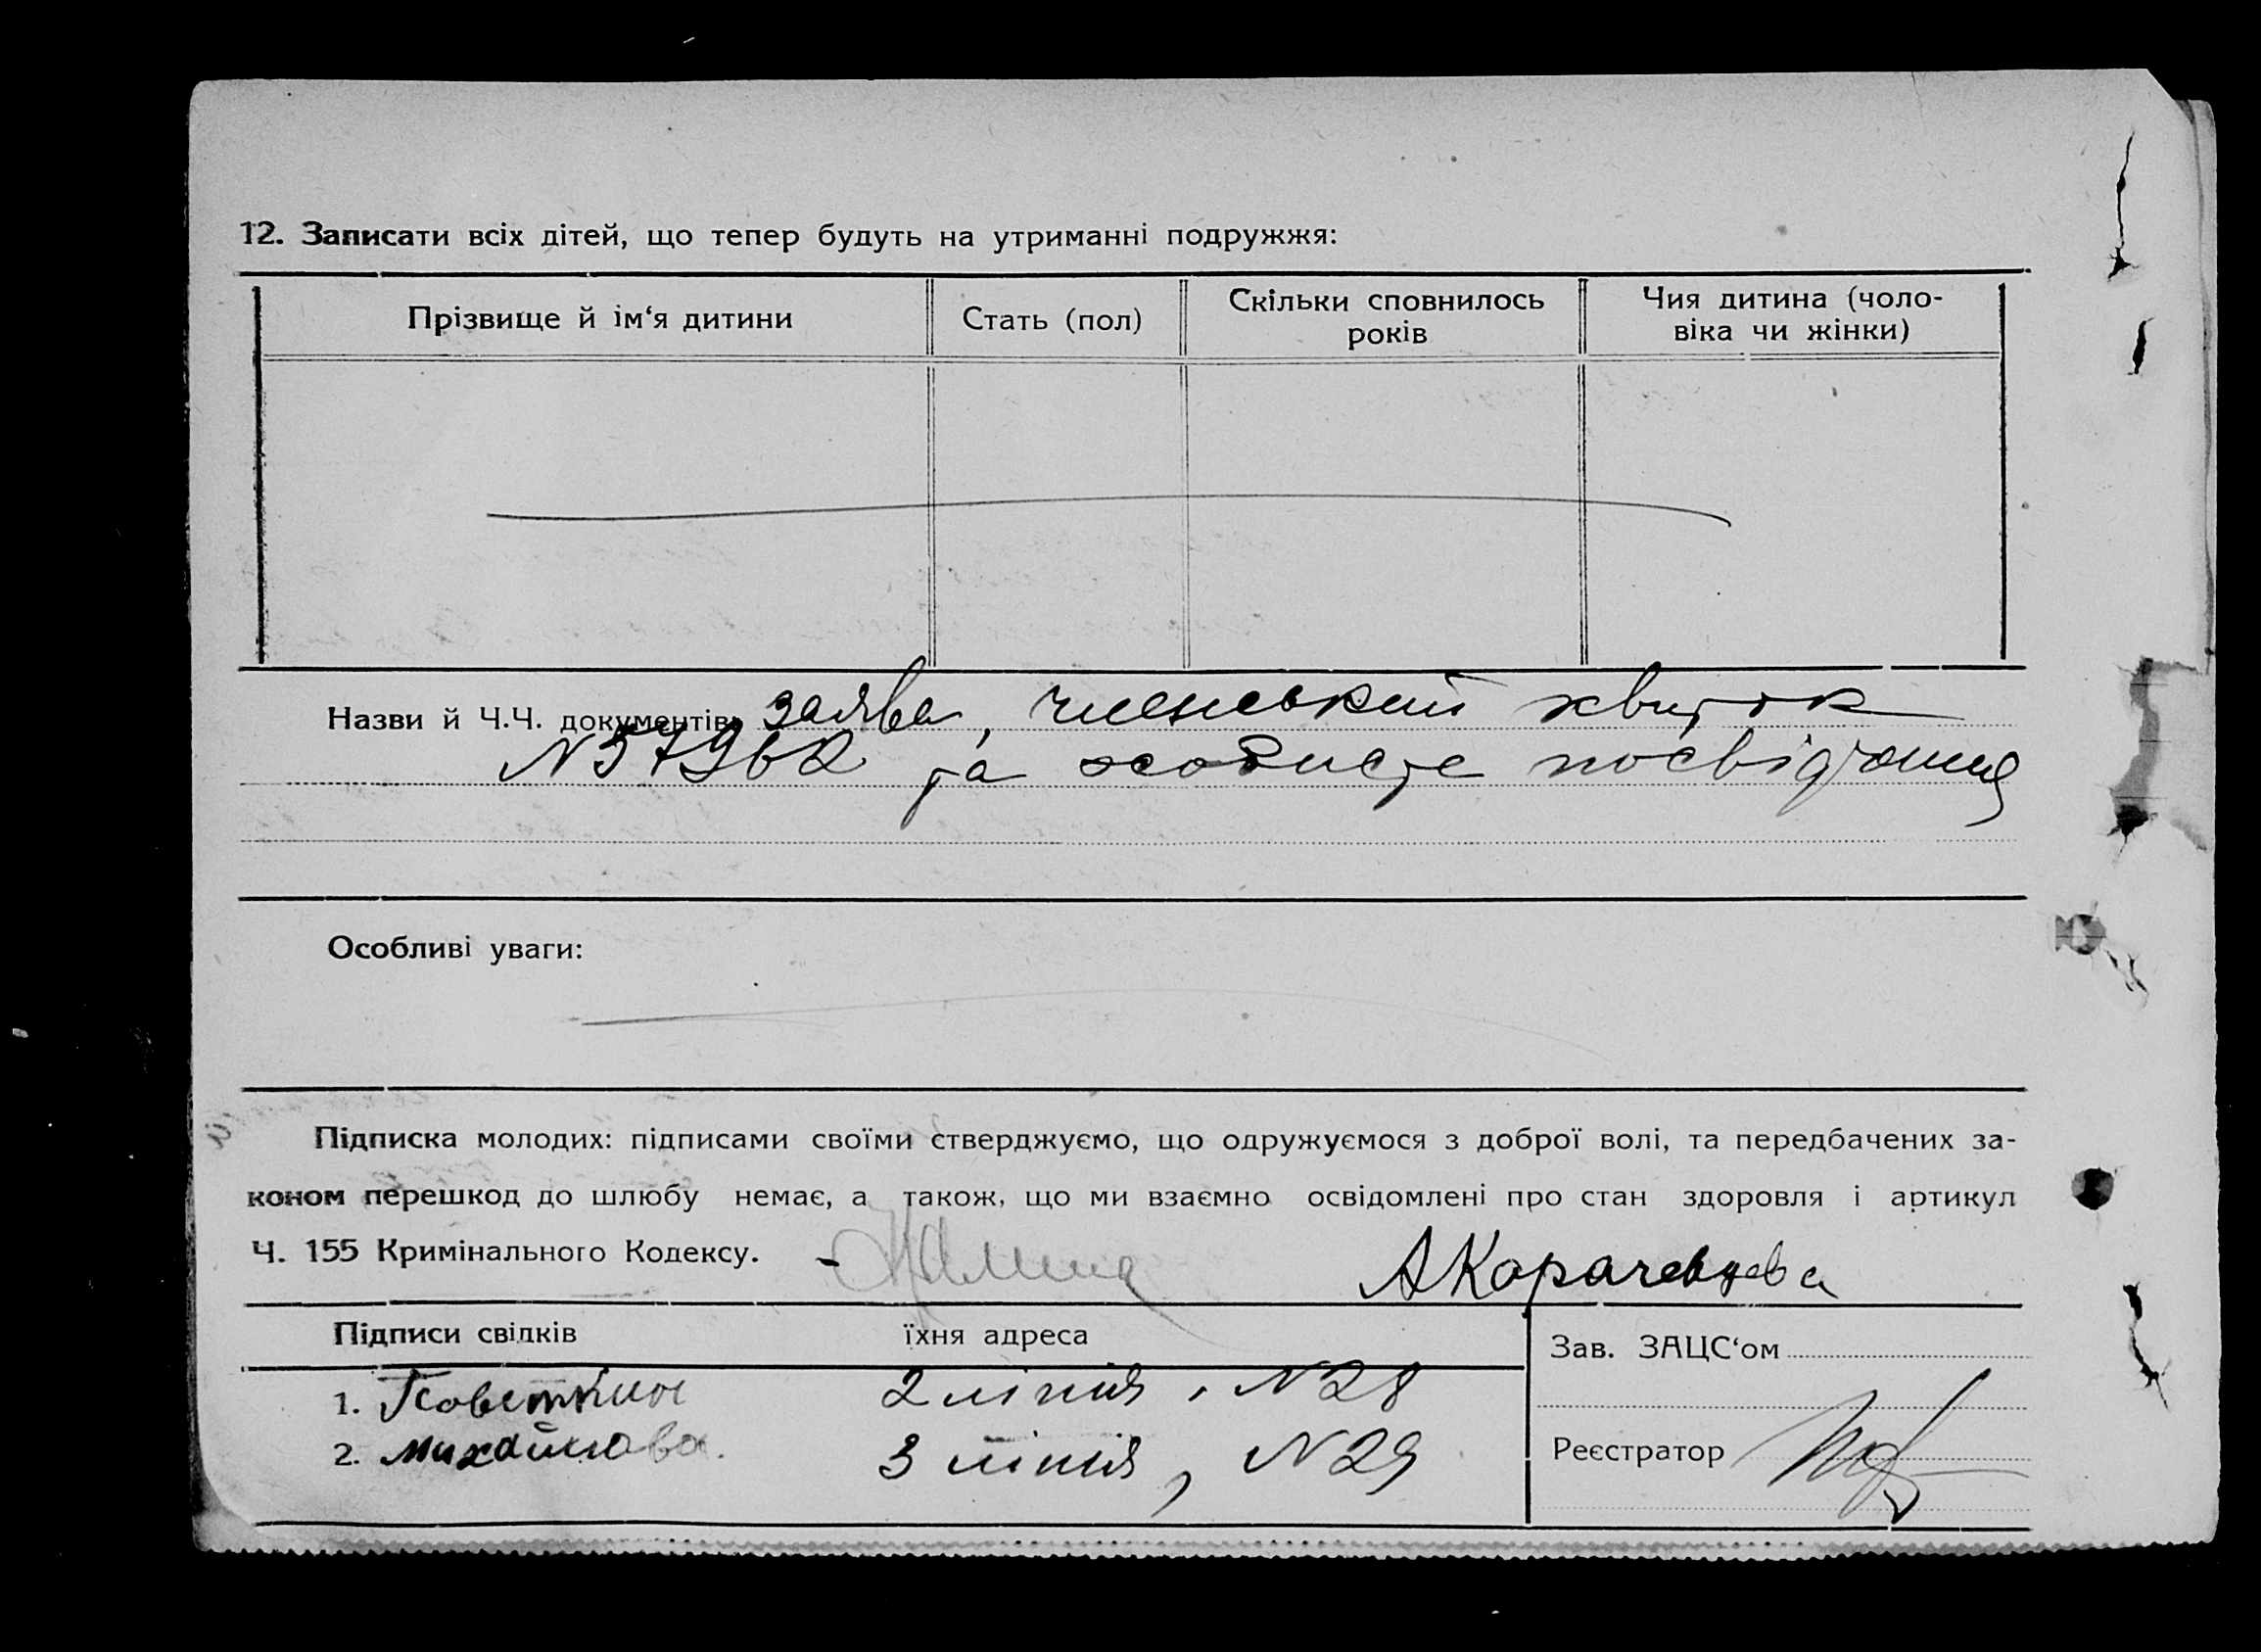 12. Записати всіх дітей, що тепер будуть на утриманні подружжя:
Прізвище й ім‘я дитини
Стать (пол)
Скільки сповнилось
років
Чия дитина (чоло-
віка чи жінки)
Назви й Ч.Ч. документів: заява, членський квиток
N 57962 та особисте посвідчення
Особливі уваги:
Підписка молодих: підписами своїми стверджуємо, що одружуємося з доброї волі, та передбачених за-
коном перешкод до шлюбу немає, а також, що ми взаємно освідомлені про стан здоровля і артикул
Ч. 155 Кримінального Кодексу. АКарачевцева
Підписи свідків їхня адреса
Зав. ЗАЦС‘ом
1. Поветкин 2 лінія, N 28
2. Михайлова. 3 лінія, N 29
Реєстратор